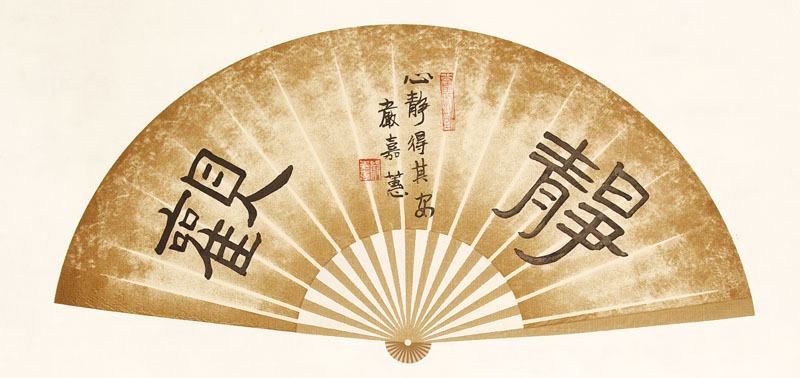 靜
觀
心靜得其安
嚴嘉蕙